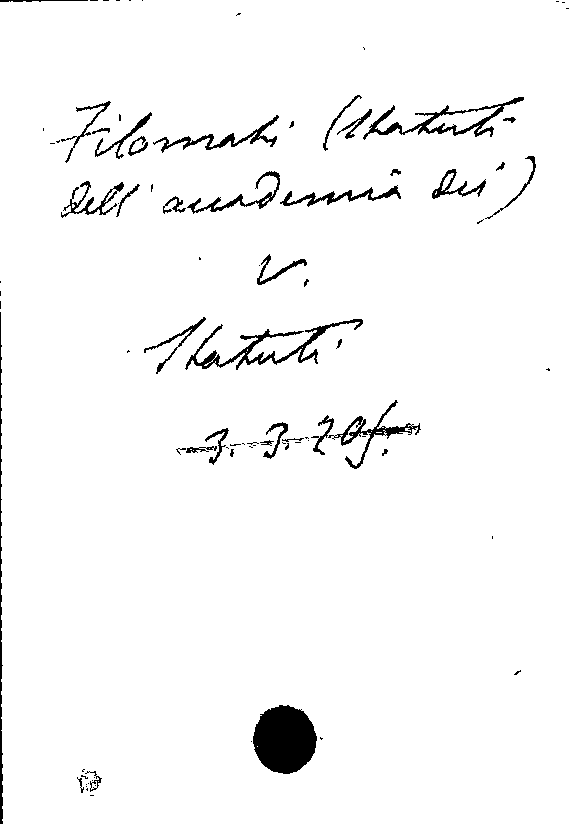 Filomati (Statuti
dell'accademia dei)
V.
Statuti
3. 3. 20f.